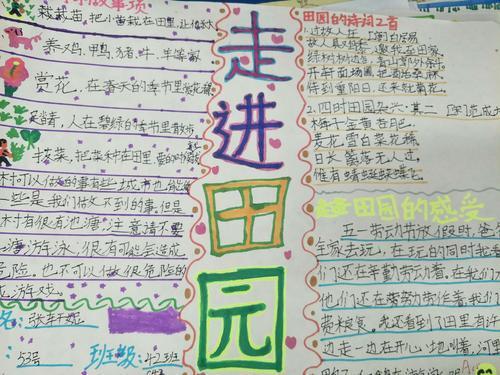 故事项
栽栽苗,把小苗栽在田里,让
养鸡,鸭,猪,牛,羊等家
赏花,在春天的季节里
者,人在碧绿的季节里散步
搭菜,把菜种在田里
村可以做的事有些城市也能
一些是我们做不到的事.但是
村有很有池塘,注意请不要
塘游泳,很有可能会造成
危险.也不可以做很危险的
游戏
名:张
53号
班级:四2班
走进田园
田园的诗词2首
1.过故人庄 [唐]孟浩然
故人具又鸡黍,邀我至田家.
绿树村边合,青山郭外斜.
开轩面场圃,把酒话桑麻.
待到重阳日,还来就菊花.
2.四时田园杂兴·其二 [宋]范成大
梅子金黄杏子肥.
麦花雪白菜花稀.
日长篱落无人过,
惟有蜻蜓蛱蝶飞
走进田园的感受
五一劳动节放假时,爸爸
家去玩,在玩的同时我
们还在辛勤劳动着,在我们
他们还在努力劳作着,我们
费粮食.我还看到了田里有许
边走一边在开心地叫着,河里